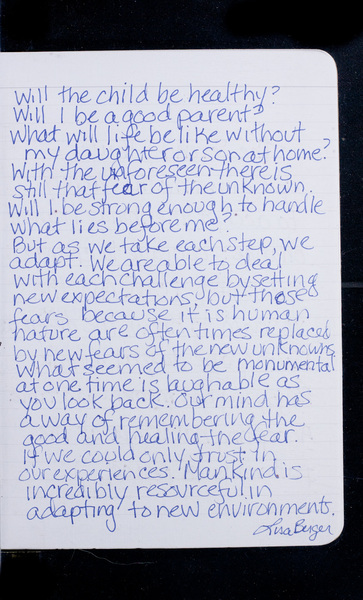 Will the child be healthy?
Will I be a good parent?
What will life be like without
my daughter or son at home?
With the unforeseen there is
still that fear of the unknown.
Will I be strong enough to handle
what lies before me?
But as we take each step, we
adapt. We are able to deal
with each challenge by setting
new expectations, but those
fears because it is human
nature are often times replaced
by new fears of the new unknowns.
What seemed to be monumental
at one time is laughable as
you look back. Our mind has
a way of remembering the
good and healing the fear.
If we could only trust in
our experiences. Mankind is
incredibly resourceful in
adapting to new environments.
Lisa Berger